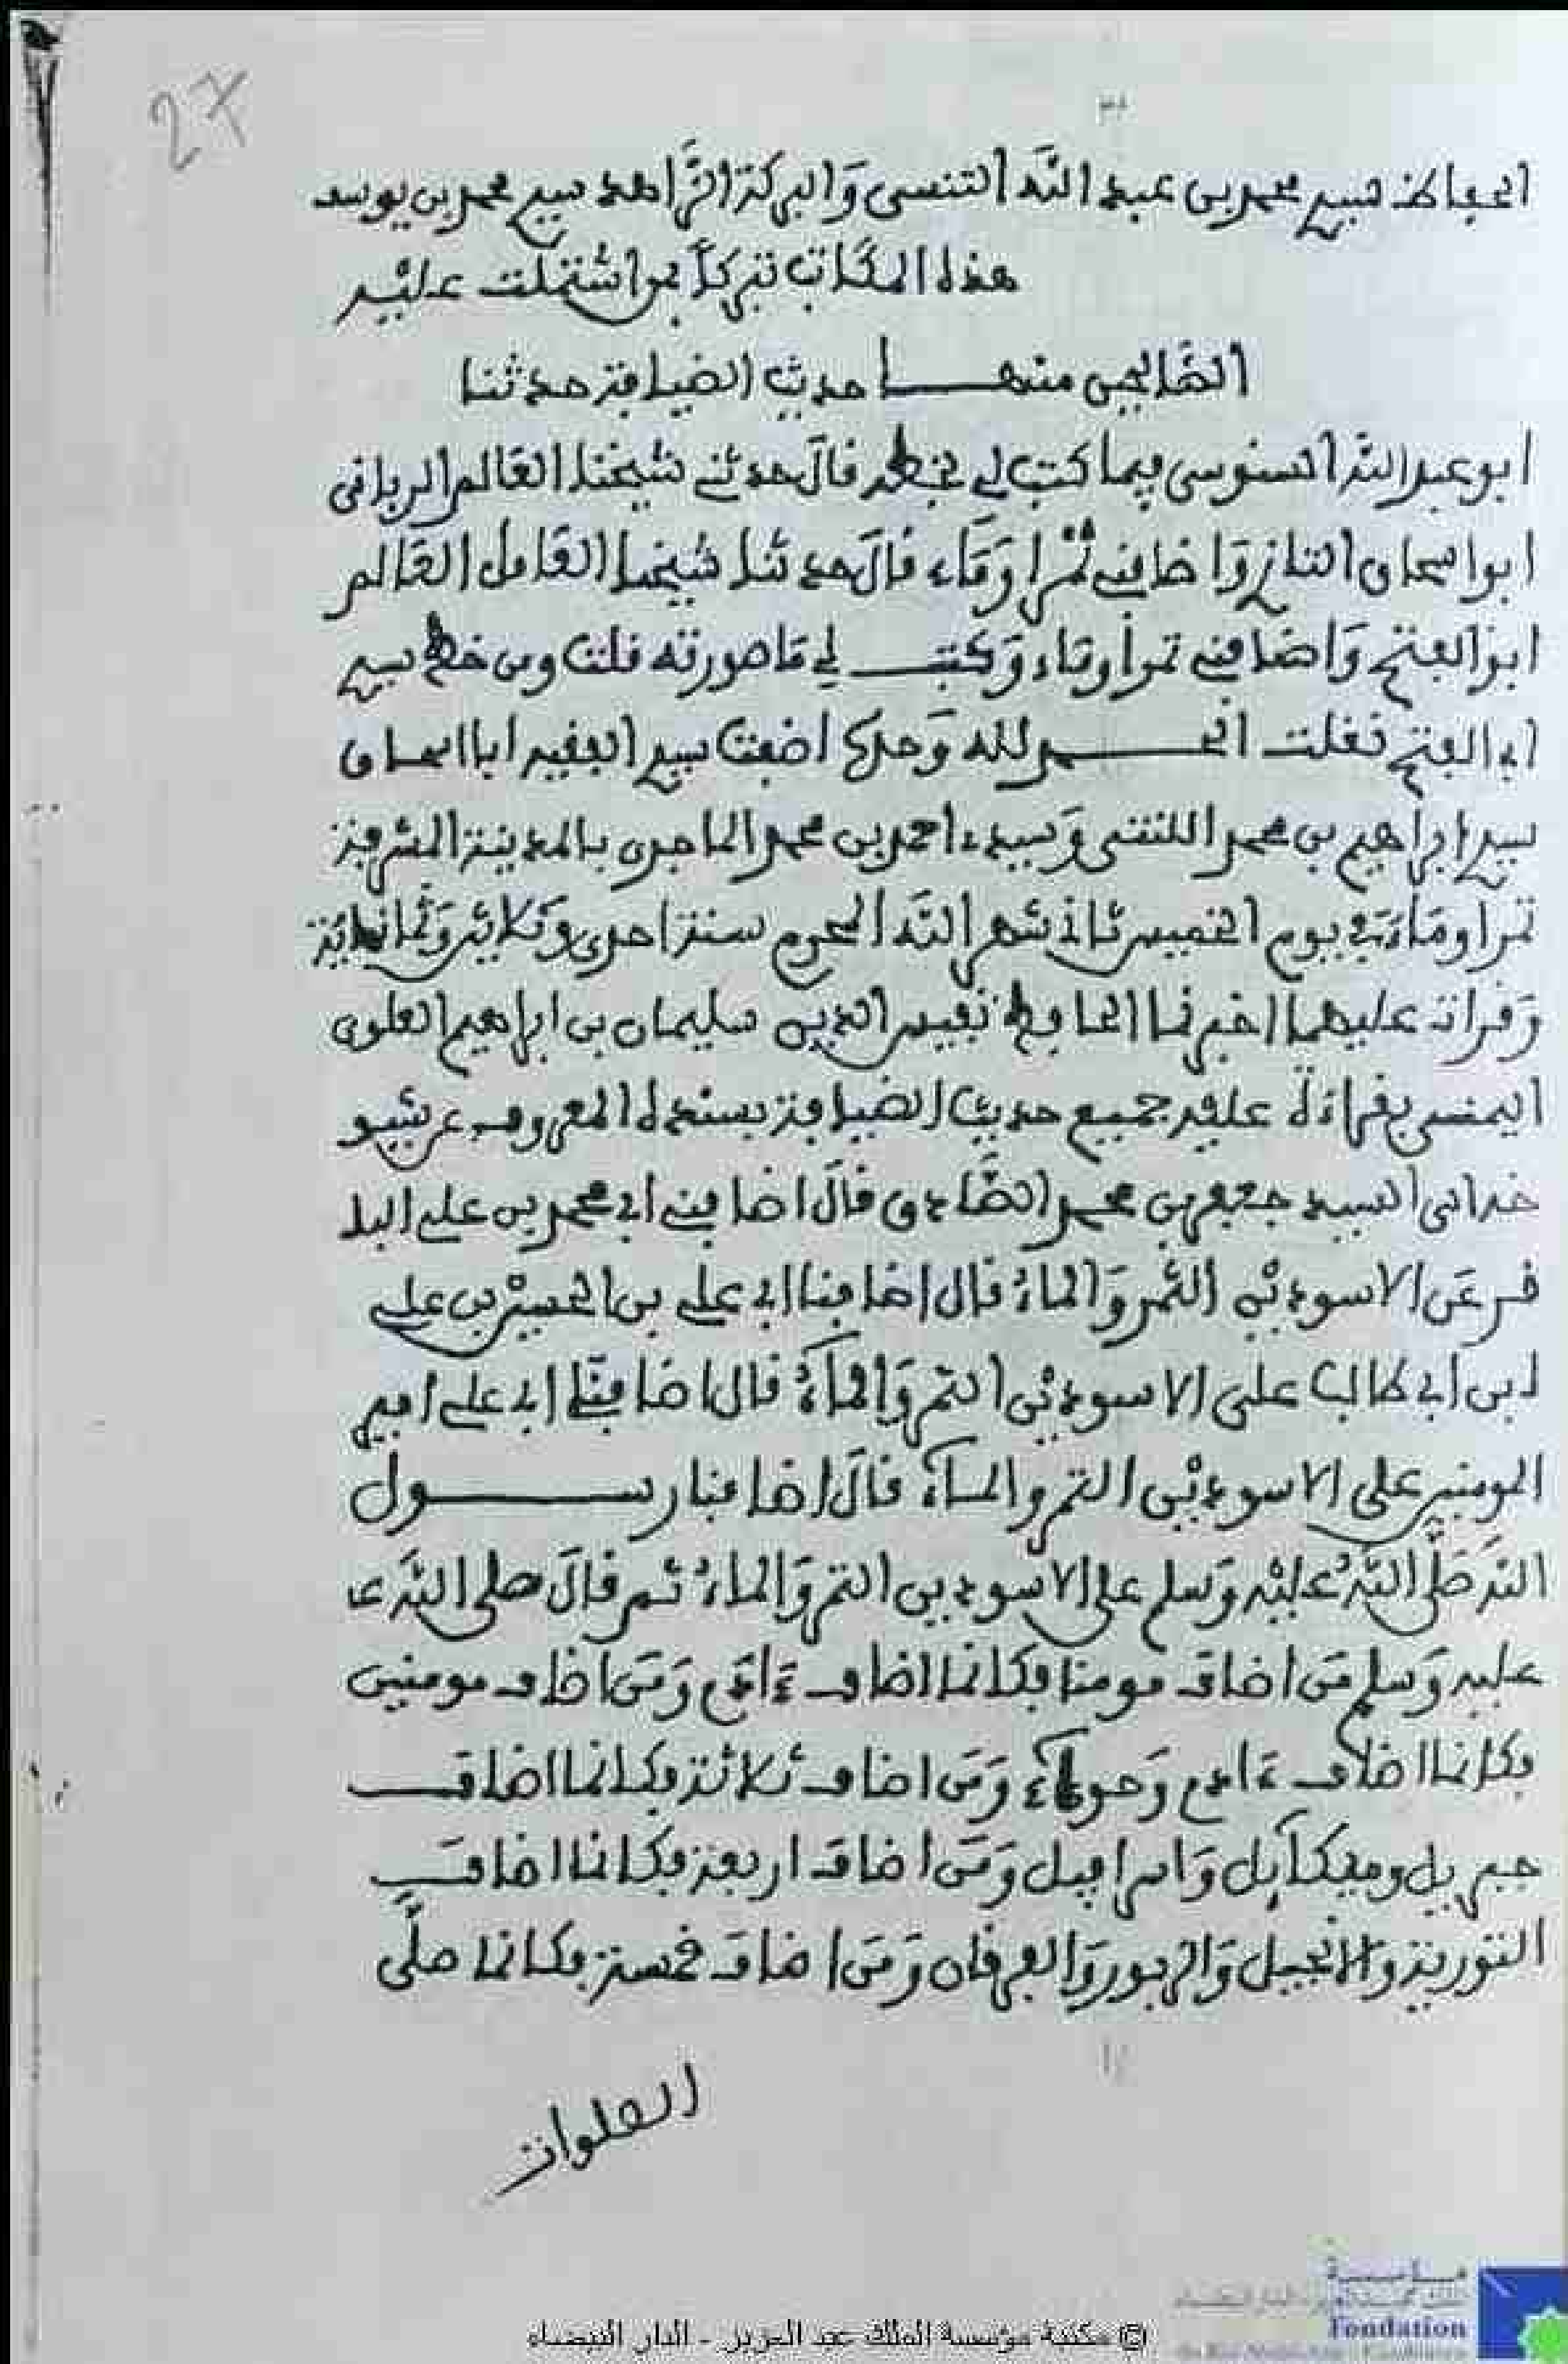 27
الحافظ سيدي محمد بن عبد الله التنسي وَالبركة الزَّاهد سيدي محمد بن يوسف
هذه المكاتب تبركاً بمن اشتملت عليه
الصَّالحين منها حديث الضيافة حدثنا
ابو عبد الله السنوسي فيما كتب لي بخطه قالَ حدثني شيخنا العَالم الرباني
ابو اسحاق التازي وَاضافني تمْرا وَمَاء قالَ حدثنا شيخنا العَامل العَالم
ابو الفتح وَاضَافني تمرا وماء وَكتب لي مَا صورته قلت ومن خط سيدي
ابي الفتح نقلت الحمد لله وَحده اضفت سيدي الفقيه ابا اسحاق
سيدي ابراهيم بن محمد اللنتي وَسيدي احمد بن محمد الماجري بالمدينة المشرفة
تمرا ومَاء في يوم الخميس ثاني شهر الله المحرم سنة احدى وَثلاثين وَثمانمائة
وَقرات عليهما اخبرنا الحافظ نفيس الدين سليمان بن ابراهيم العلوي
اليمني بقراءة عليه جميع حديث الضيافة بسنده المعروف عن شيو
خه الى السيد جعفر بن محمد الصَّادق قالَ اضافني ابي محمد بن علي البا
قر عَن الاسودَيْن التَّمر وَالماءُ قال اضافنا ابي علي بن الحسيْن بن علي
ابن ابي طالب على الاسودَيْن التمر وَالماءُ قال اضافنا ابي علي امير
المومنين على الاسودَيْن التمر والماءُ قالَ اضافنا رسول
الله صَلَّى اللهُ عليْه وَسلم على الاسودين التمر وَالماءُ ثم قالَ صلى اللهَ عا
عليه وَسلم مَن اضاف مومنا فكانما اضاف ءَادَم وَمَن اضاف مومنين
فكانما اضاف ءادم وَحواء وَمَن اضاف ثلاثة فكانما اضاف
جبريل وميكآيل وَاسرافيل وَمَن اضاف اربعة فكانما اضافَ
التورية وَالانجيل وَالزبور وَالفرقان وَمَن اضاف خمسة فكانما صلَّى
الصلوات
© مكتبة مؤسسة الملك عبد العزيز - الدار البيضاء
Fondation